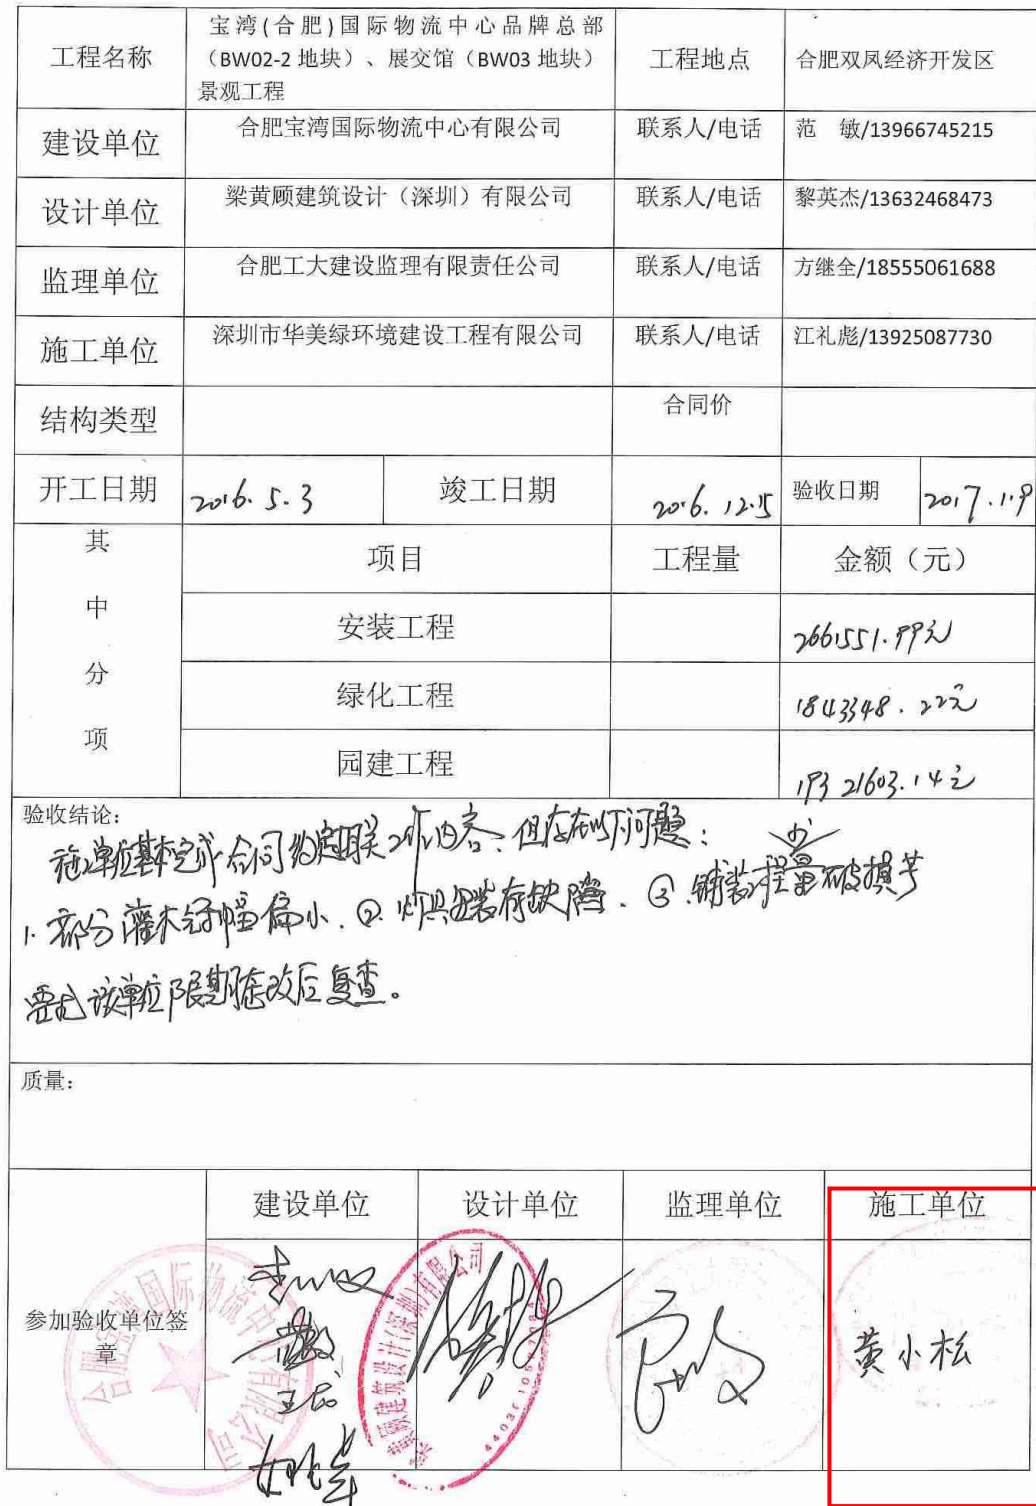 工程名称
宝湾(合肥)国际物流中心品牌总部
（BW02-2 地块）、展交馆（BW03 地块）
景观工程
工程地点
合肥双凤经济开发区
建设单位
合肥宝湾国际物流中心有限公司
联系人/电话
范 敏/13966745215
设计单位
梁黄顾建筑设计（深圳）有限公司
联系人/电话
黎英杰/13632468473
监理单位
合肥工大建设监理有限责任公司
联系人/电话
方继全/18555061688
施工单位
深圳市华美绿环境建设工程有限公司
联系人/电话
江礼彪/13925087730
结构类型
合同价
开工日期
2016.5.3
竣工日期
2016.12.15
验收日期
2017.1.9
其中分项
项目
工程量
金额（元）
安装工程
2661551.99元
绿化工程
1843348.22元
园建工程
19321603.14元
验收结论：
施工单位基本完成合同约定工作内容，但存在以下问题：
1.部分灌木冠幅偏小.②.灯具安装存缺陷.③.铺装少量破损等
要求该单位限期整改后复查。
质量：
参加验收单位签章
建设单位
设计单位
监理单位
施工单位
黄小松
合肥宝湾国际物流中心有限公司
梁黄顾建筑设计(深圳)有限公司